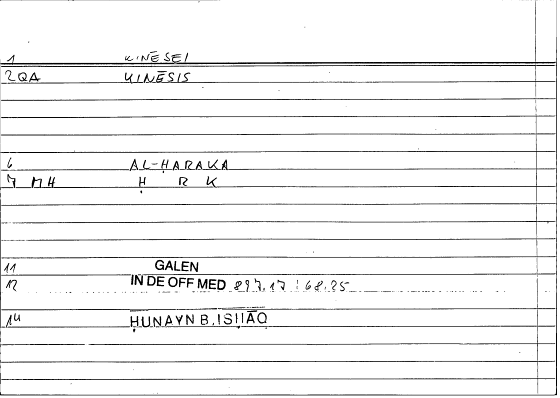 1 KINĒSEI
2 QA KINĒSIS
6 AL-ḤARAKA
7 MH Ḥ R K
11 GALEN
12 IN DE OFF MED 897.17 : 68.25
14 ḤUNAYN B. ISḤĀQ